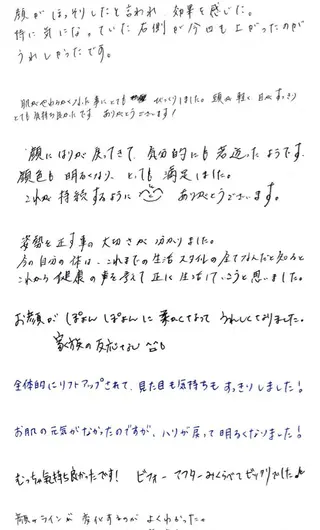 顔がほっそりしたと言われ 効果を感じた。
特に気になっていた右側が今回も上がったのが
うれしかったです。
肌がやわらかくなった事にとても びっくりしました。 頭が軽く 目がすっきり
とても気持ち良かったです ありがとうございます!
顔にはりが戻ってきて、気分的にも若返ったようです。
顔色も明るくなり、とっても満足しました。
これが持続するように ありがとうございます。
姿勢を正す事の大切さが分かりました。
今の自分の体は、これまでの生活スタイルの全てなんだと知り
これから健康の事を考えて正に生活していこうと思いました。
お顔がぽよんぽよんに柔かくなって うれしくなりました。
家族の反応
全体的にリフトアップされて、見た目も気持ちも すっきりしました!
お肌の元気がなかったのですが、ハリが戻って明るくなりました!
むっちゃ気持ち良かったです! ビフォーアフターみくらべてビックリでした。
顔のラインが変化するのがよくわかった。